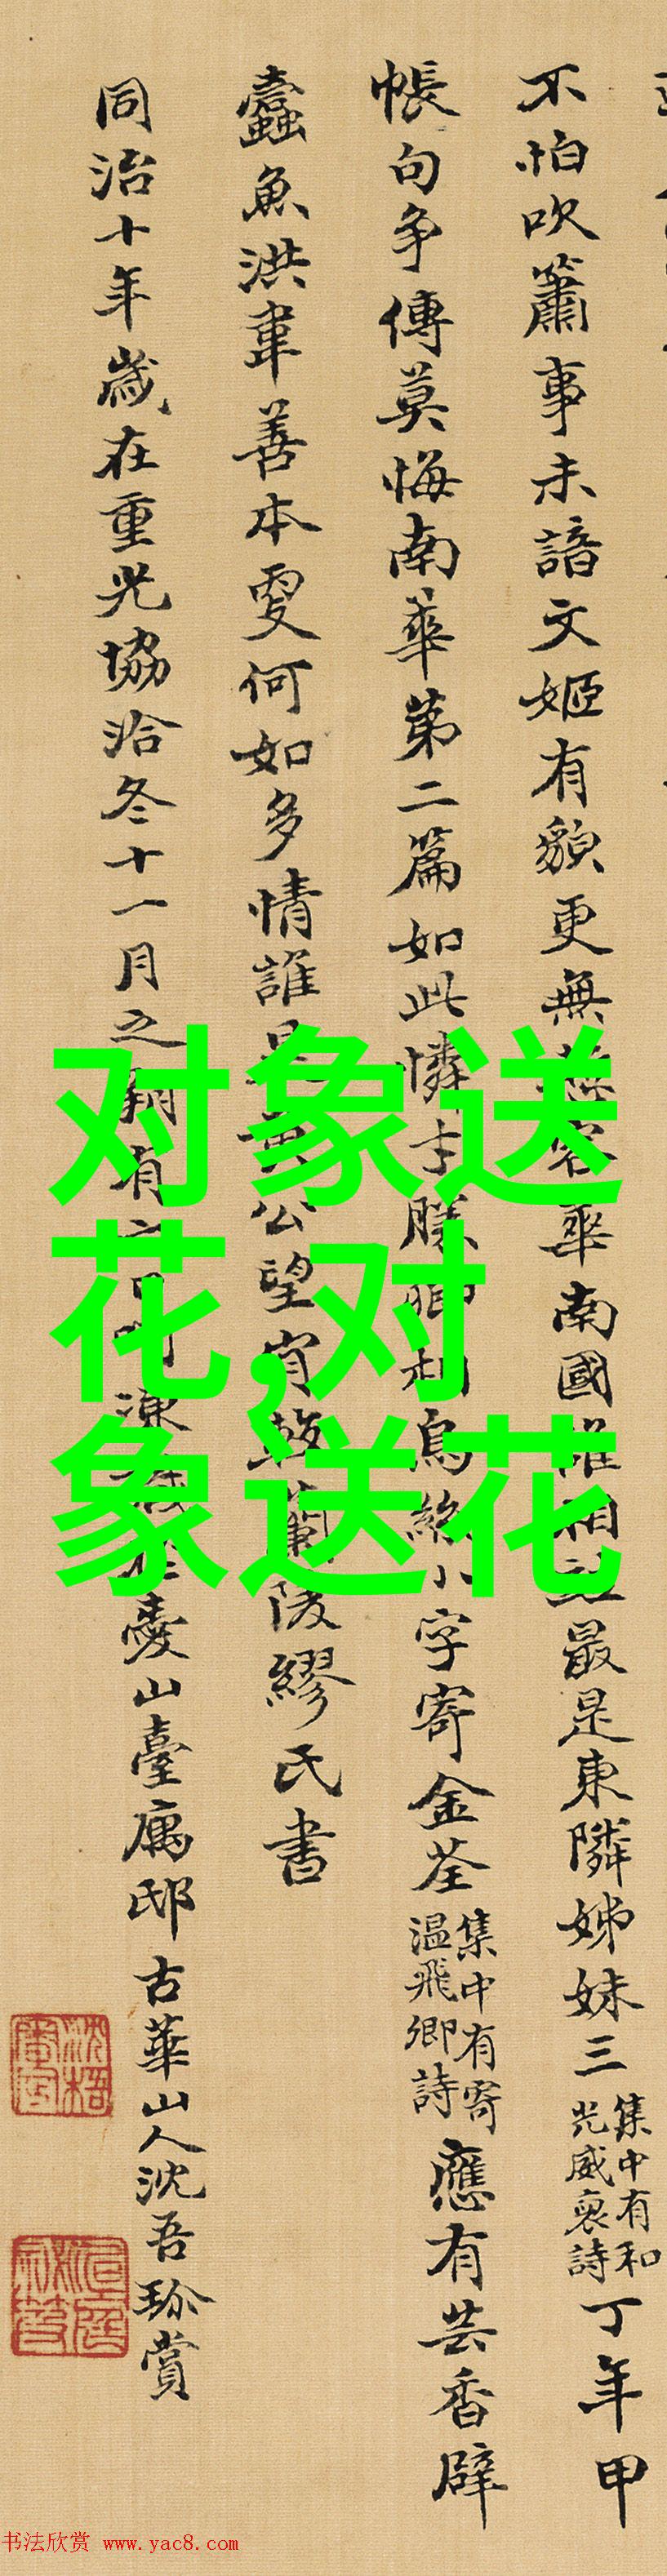 不怕吹簫事未諳文姬有貌更無華南國最是東隣姊妹三集中有和光威裒詩丁年甲
帳句爭傳莫悔南華第二篇如此憐才勝鳥絲小字寄金荃集中有寄温飛卿詩應有芸香辟
蠹魚洪韋善本更何如多情誰是公望蘭陵繆氏書
同治十年歲在重光協洽冬十一月之朔有山臺寓邸古華山人沈吾珎賞
对象送
花,对
象送花
书法欣赏 www.yac8.com